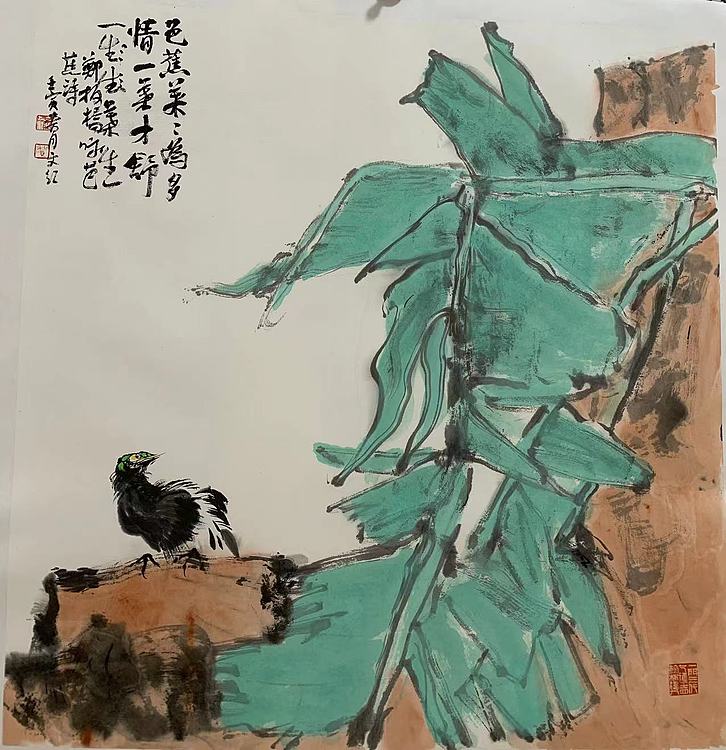 芭蕉葉〻為多
情一葉才舒
一葉生
鄭板橋咏芭
蕉詩
壬寅春月文